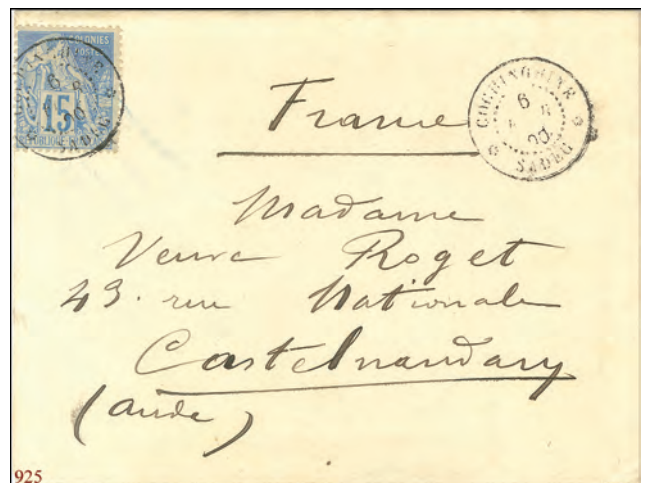 COLONIES
POSTES
15
COCHINCHINE
6
90
SADEC
France
Madame
Veuve Roget
43. rue Nationale
Castelnaudary
(Aude)
925